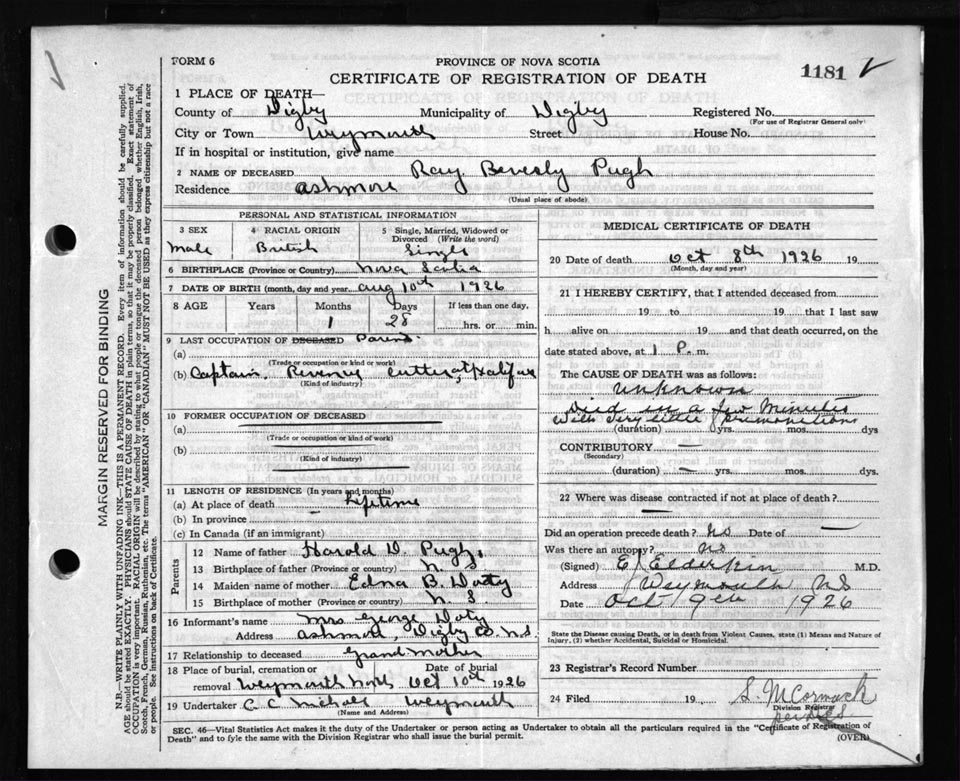 FORM 6
PROVINCE OF NOVA SCOTIA
CERTIFICATE OF REGISTRATION OF DEATH
1181
1 PLACE OF DEATH—
County of Digby Municipality of Digby Registered No.
(For use of Registrar General only)
City or Town Weymouth Street House No.
If in hospital or institution, give name
2 NAME OF DECEASED Ray Beverly Pugh
Residence Ashmore
(Usual place of abode)
PERSONAL AND STATISTICAL INFORMATION
3 SEX 4 RACIAL ORIGIN 5 Single, Married, Widowed or Divorced (Write the word)
Male British Single
6 BIRTHPLACE (Province or Country) Nova Scotia
7 DATE OF BIRTH (month, day and year) Aug 10th 1926
8 AGE Years Months Days If less than one day,
1 28 hrs. or min.
9 LAST OCCUPATION OF DECEASED Parent
(a)
(Trade or occupation or kind of work)
(b) Captain, Revenue Cutter, at Halifax
(Kind of industry)
10 FORMER OCCUPATION OF DECEASED
(a)
(Trade or occupation or kind of work)
(b)
(Kind of industry)
11 LENGTH OF RESIDENCE (In years and months)
(a) At place of death Lifetime
(b) In province
(c) In Canada (if an immigrant)
Parents
12 Name of father Harold D. Pugh
13 Birthplace of father (Province or country) N. S
14 Maiden name of mother Edna B. Doty
15 Birthplace of mother (Province or country) N. S.
16 Informant's name Mrs George Doty
Address Ashmore, Digby Co. N.S.
17 Relationship to deceased Grand Mother
18 Place of burial, cremation or Date of burial
removal Weymouth North Oct 10th 1926
19 Undertaker C. C. Weymouth
(Name and Address)
MEDICAL CERTIFICATE OF DEATH
20 Date of death Oct 8th 1926 19
(Month, day and year)
21 I HEREBY CERTIFY, that I attended deceased from
19 to 19 that I last saw
h alive on 19 and that death occurred, on the
date stated above, at 1 P. m.
The CAUSE OF DEATH was as follows:
Unknown
Died in a few Minutes
with very little premonitions
(duration) yrs. mos. dys
CONTRIBUTORY —
(Secondary)
(duration) — yrs. mos. dys.
22 Where was disease contracted if not at place of death?
—
Did an operation precede death? No Date of —
Was there an autopsy? No
(Signed) E Elderkin M.D.
Address Weymouth NS
Date Oct 9th 1926
State the Disease causing Death, or in death from Violent Causes, state (1) Means and Nature of Injury, (2) whether Accidental, Suicidal or Homicidal.
23 Registrar's Record Number
24 Filed 19 S. McCormack
Division Registrar
SEC. 46—Vital Statistics Act makes it the duty of the Undertaker or person acting as Undertaker to obtain all the particulars required in the "Certificate of Registration of
Death" and to file the same with the Division Registrar who shall issue the burial permit. (OVER)
MARGIN RESERVED FOR BINDING
N.B.—WRITE PLAINLY WITH UNFADING INK—THIS IS A PERMANENT RECORD. Every item of information should be carefully supplied.
AGE should be stated EXACTLY. PHYSICIANS should STATE CAUSE OF DEATH in plain terms, so that it may be properly classified. Exact statement of
OCCUPATION is very important. RACIAL ORIGIN will be described by stating to what people or tongue the deceased person belonged whether English, Irish,
Scotch, French, German, Russian, Ruthenian, etc. The terms "AMERICAN" OR "CANADIAN" MUST NOT BE USED as they express citizenship but not a race
or people. See instructions on back of Certificate.